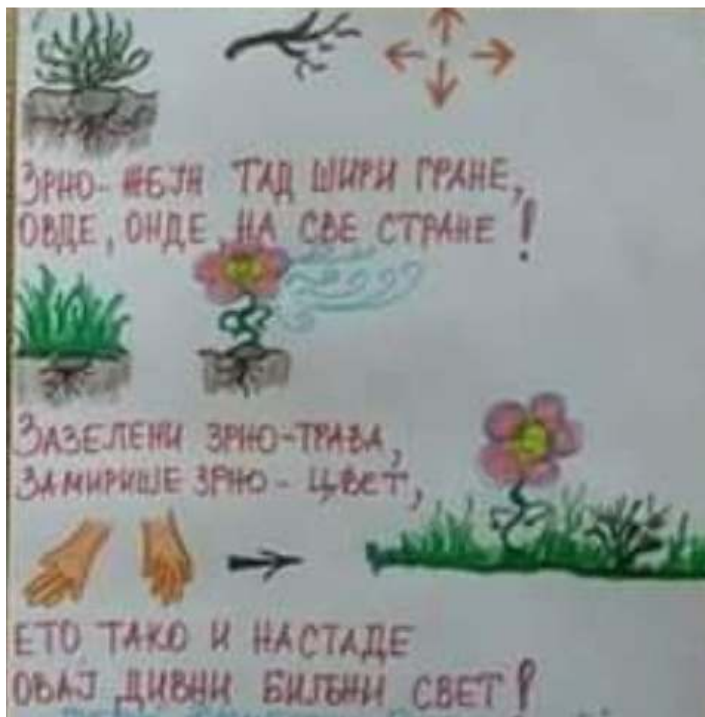 ЗРНО-ЖБУН ТАД ШИРИ ГРАНЕ,
ОВДЕ, ОНДЕ, НА СВЕ СТРАНЕ!
ЗАЗЕЛЕНИ ЗРНО-ТРАВА,
ЗАМИРИШЕ ЗРНО-ЦВЕТ,
ЕТО ТАКО И НАСТАДЕ
ОВАЈ ДИВНИ БИЉНИ СВЕТ!